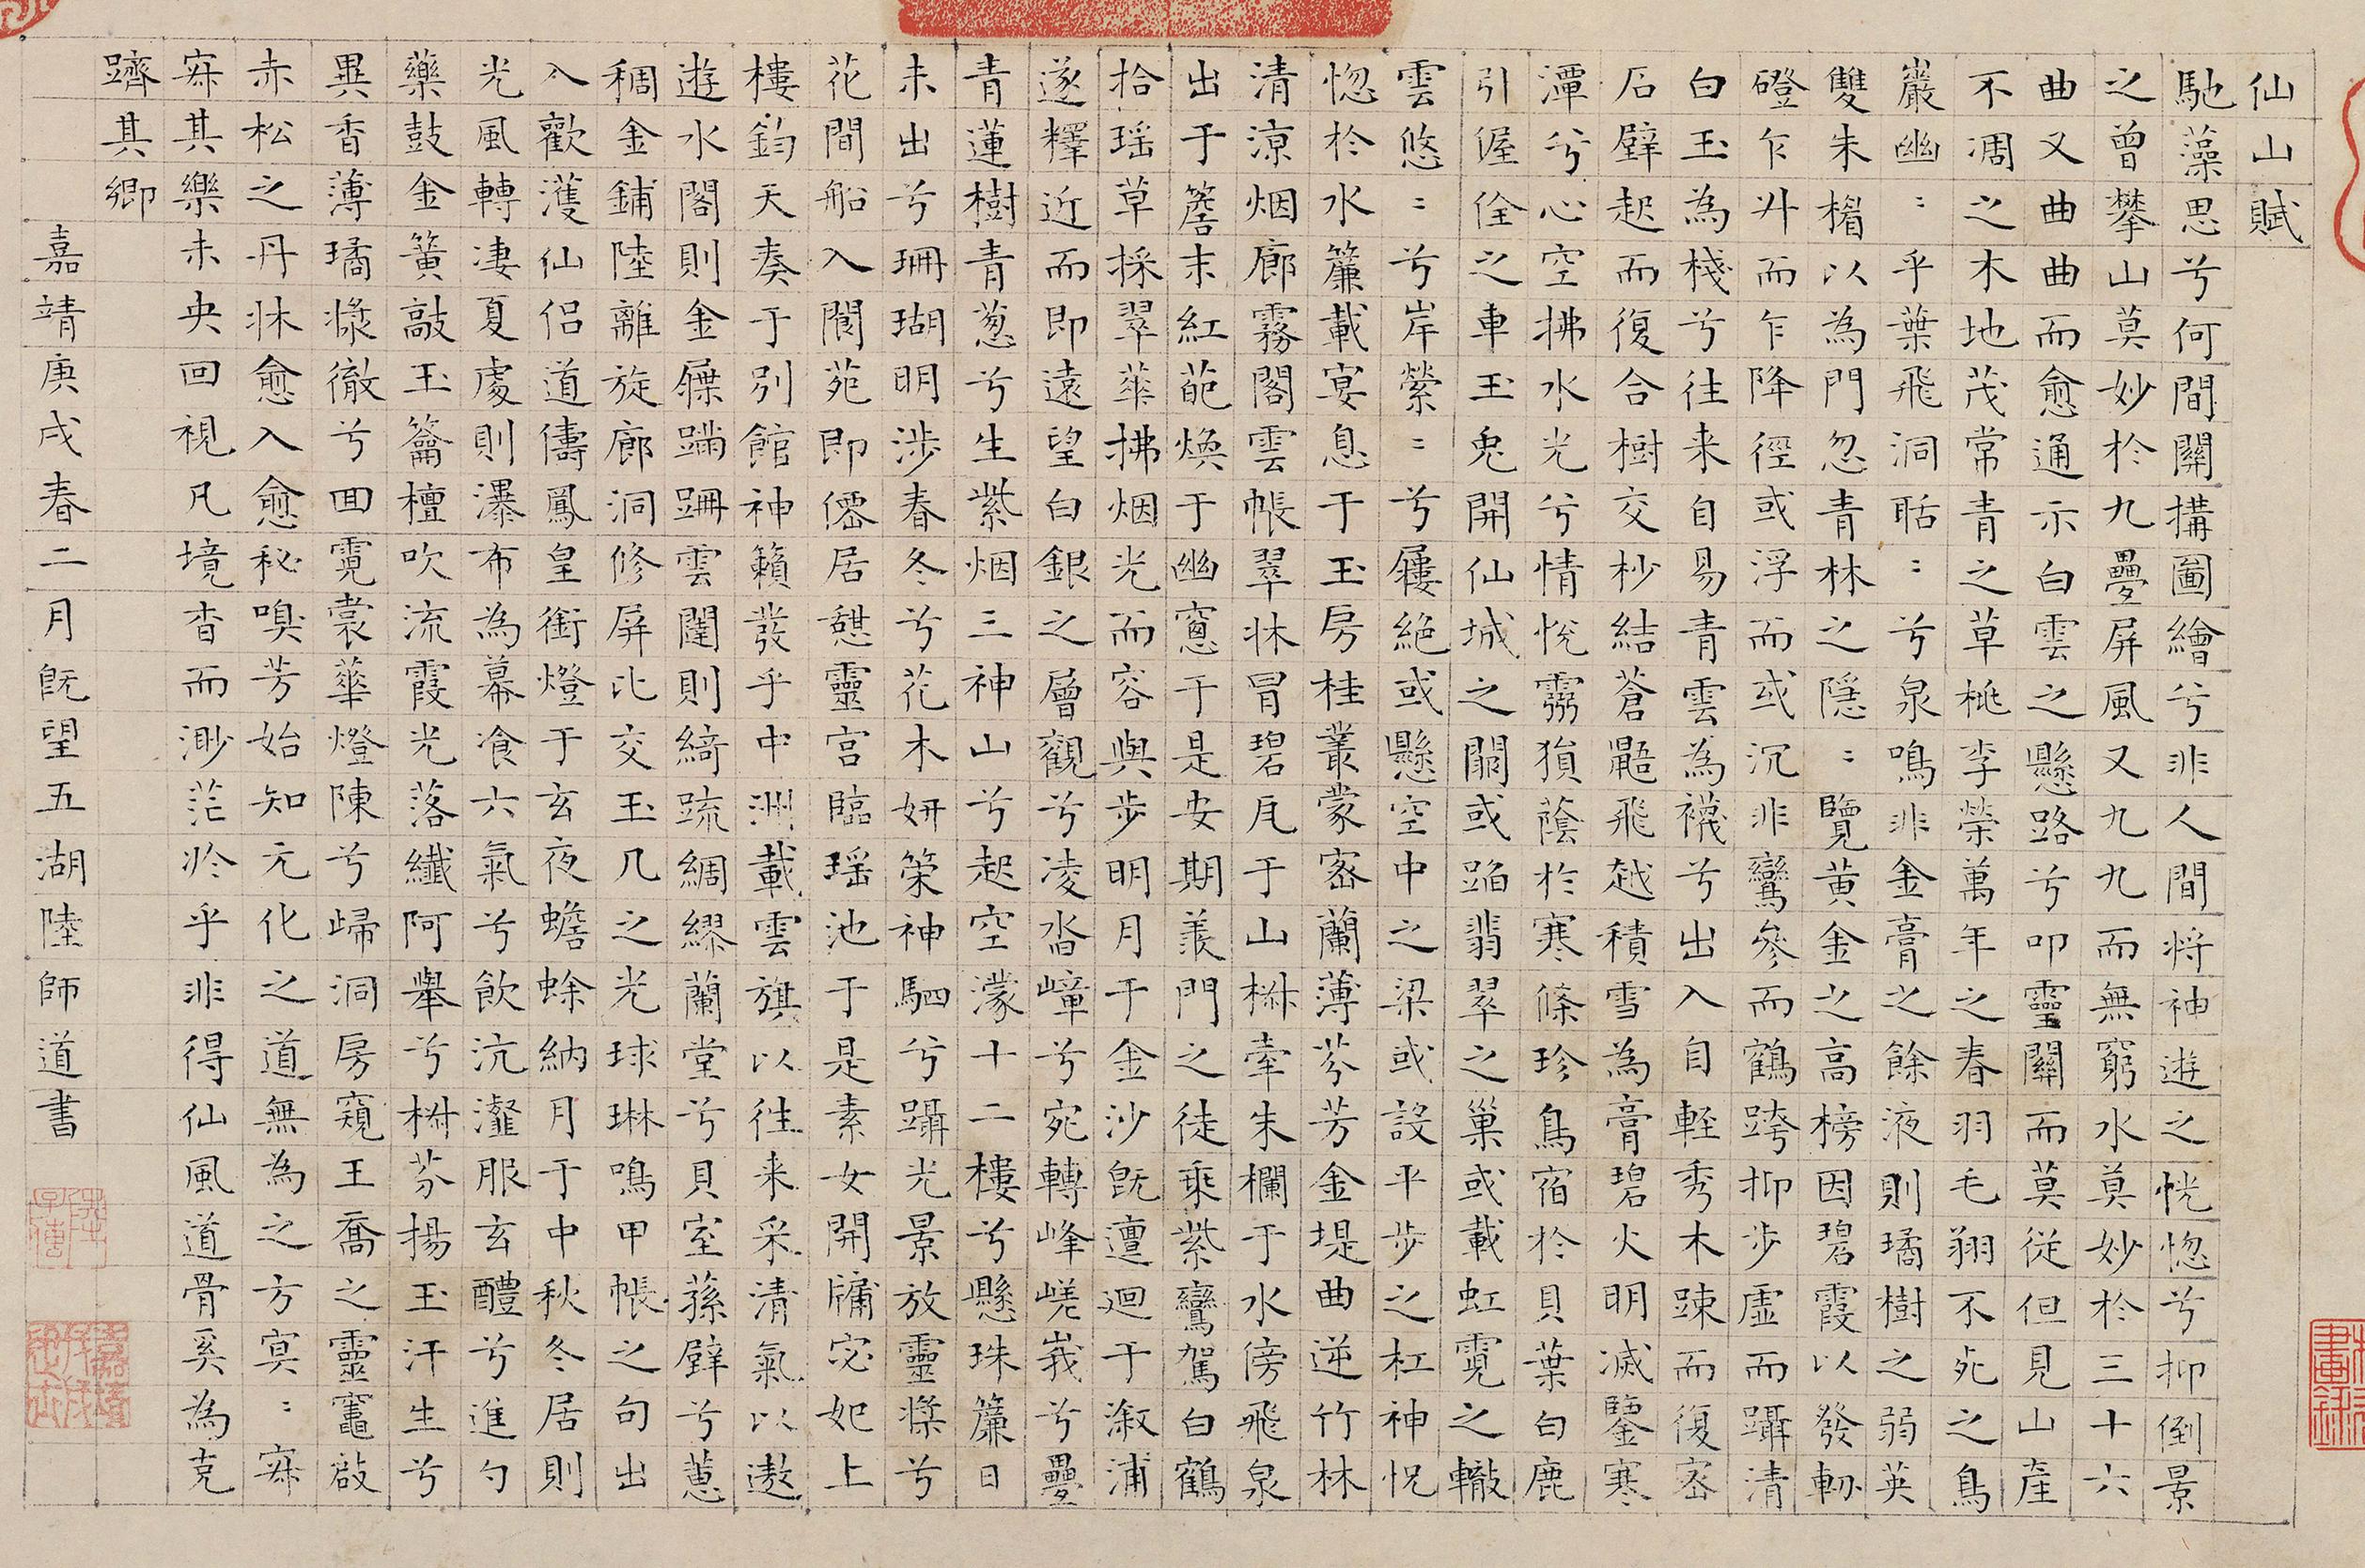 仙山賦
馳藻思兮何間關搆圖繪兮非人間将神遊之恍惚兮抑倒景
之曾攀山莫妙於九疊屏風又九九而無窮水莫妙於三十六
曲又曲曲而愈通示白雲之懸路兮叩靈關而莫從但見山產
不凋之木地茂常青之草桃李榮萬年之春羽毛翔不死之鳥
巖幽:乎葉飛洞聒:兮泉鳴非金膏之餘液則璚樹之弱英
雙朱楣以為門忽青林之隱:覽黄金之高榜因碧霞以發軔
磴乍升而乍降徑或浮而或沉非鸞參而鶴跨抑步虛而躡清
白玉為棧兮往来自易青雲為襪兮出入自輊秀木踈而復密
石壁起而復合樹交杪結蒼鼯飛越積雪為膏碧火明滅鑒寒
潭兮心空拂水光兮情悅霧猿蔭於寒條珍鳥宿於貝葉白鹿
引偓佺之車玉兎開仙城之關或蹈翡翠之巢或載虹霓之轍
雲悠:兮岸縈:兮屨絕或懸空中之梁或設平步之杠神怳
惚於水簾載宴息于玉房桂叢蒙密蘭薄芬芳金堤曲逆竹林
清涼烟廊霧閣雲帳翠牀冒碧瓦于山椒牽朱欄于水傍飛泉
出于簷末紅葩煥于幽窓于是安期羨門之徒乗紫鸞駕白鶴
拾瑶草採翠華拂烟光而容與步明月于金沙旣邅迴于溆浦
遂釋近而即遠望白銀之層觀兮凌沓嶂兮宛轉峰嵯峩兮疊
青蓮樹青葱兮生紫烟三神山兮起空濛十二樓兮懸珠簾日
未出兮珊瑚明涉春冬兮花木妍策神駟兮躡光景放靈槳兮
花間船入閬苑即僊居憇靈宫臨瑶池于是素女開牖宓妃上
樓鈞天奏于别館神籟發乎中洲載雲旗以往来采清氣以遨
遊水閣則金屧蹣跚雲闥則綺疏綢繆蘭堂兮貝室蓀壁兮蕙
稠金鋪陸離旋廊洞修屏比交玉几之光球琳鳴甲帳之句出
入歡濩仙侣道儔鳳皇銜燈于玄夜蟾蜍納月于中秋冬居則
光風轉凄夏處則瀑布為幕飡六氣兮飲沆瀣服玄醴兮進勺
藥鼓金簧敲玉籥檀吹流霞光落纖阿舉兮椒芬揚玉汗生兮
異香薄璚漿徹兮囬霓裳華燈陳兮歸洞房窺王喬之靈竈啟
赤松之丹牀愈入愈秘嗅芳始知元化之道無為之方寞:寐
寐其樂未央回視凡境杳而渺茫於乎非得仙風道骨奚為克
躋其鄉
嘉靖庚戌春二月旣望五湖陸師道書